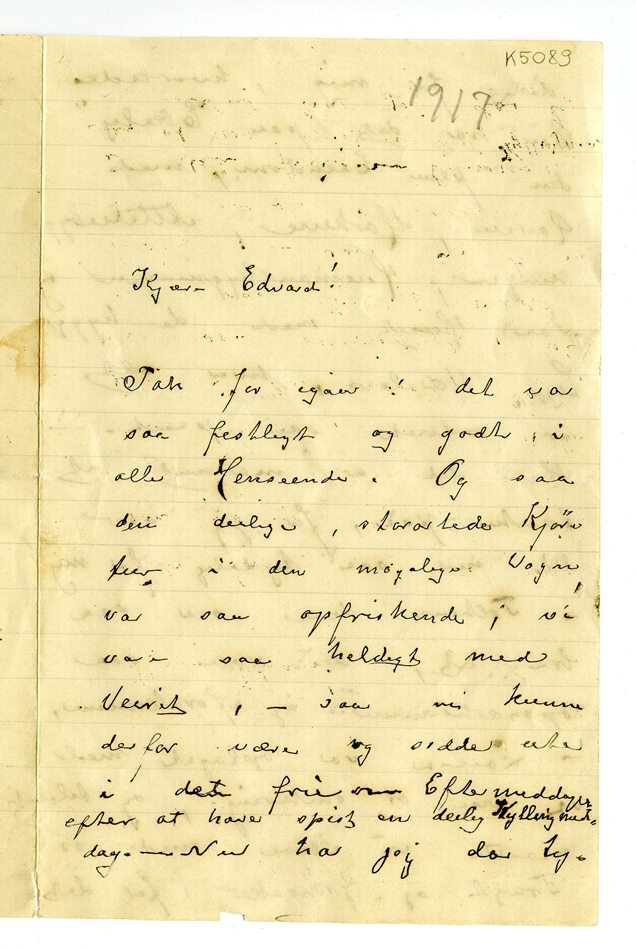 K5089
1917
Kjære Edvard!
Tak for igaar! det var
saa festligt og godt, i
alle Henseende. Og saa
den deilige, storartede Kjöre
tur i den magelige Vogn,
var saa opfriskende; vi
var saa heldigt med
Veiret, – saa vi kunne
derfor være og sidde ute
i det frie om Eftermeddagen
efter at have spist en deilig Kyllingmid-
dag. – Nu har jeg da ty-